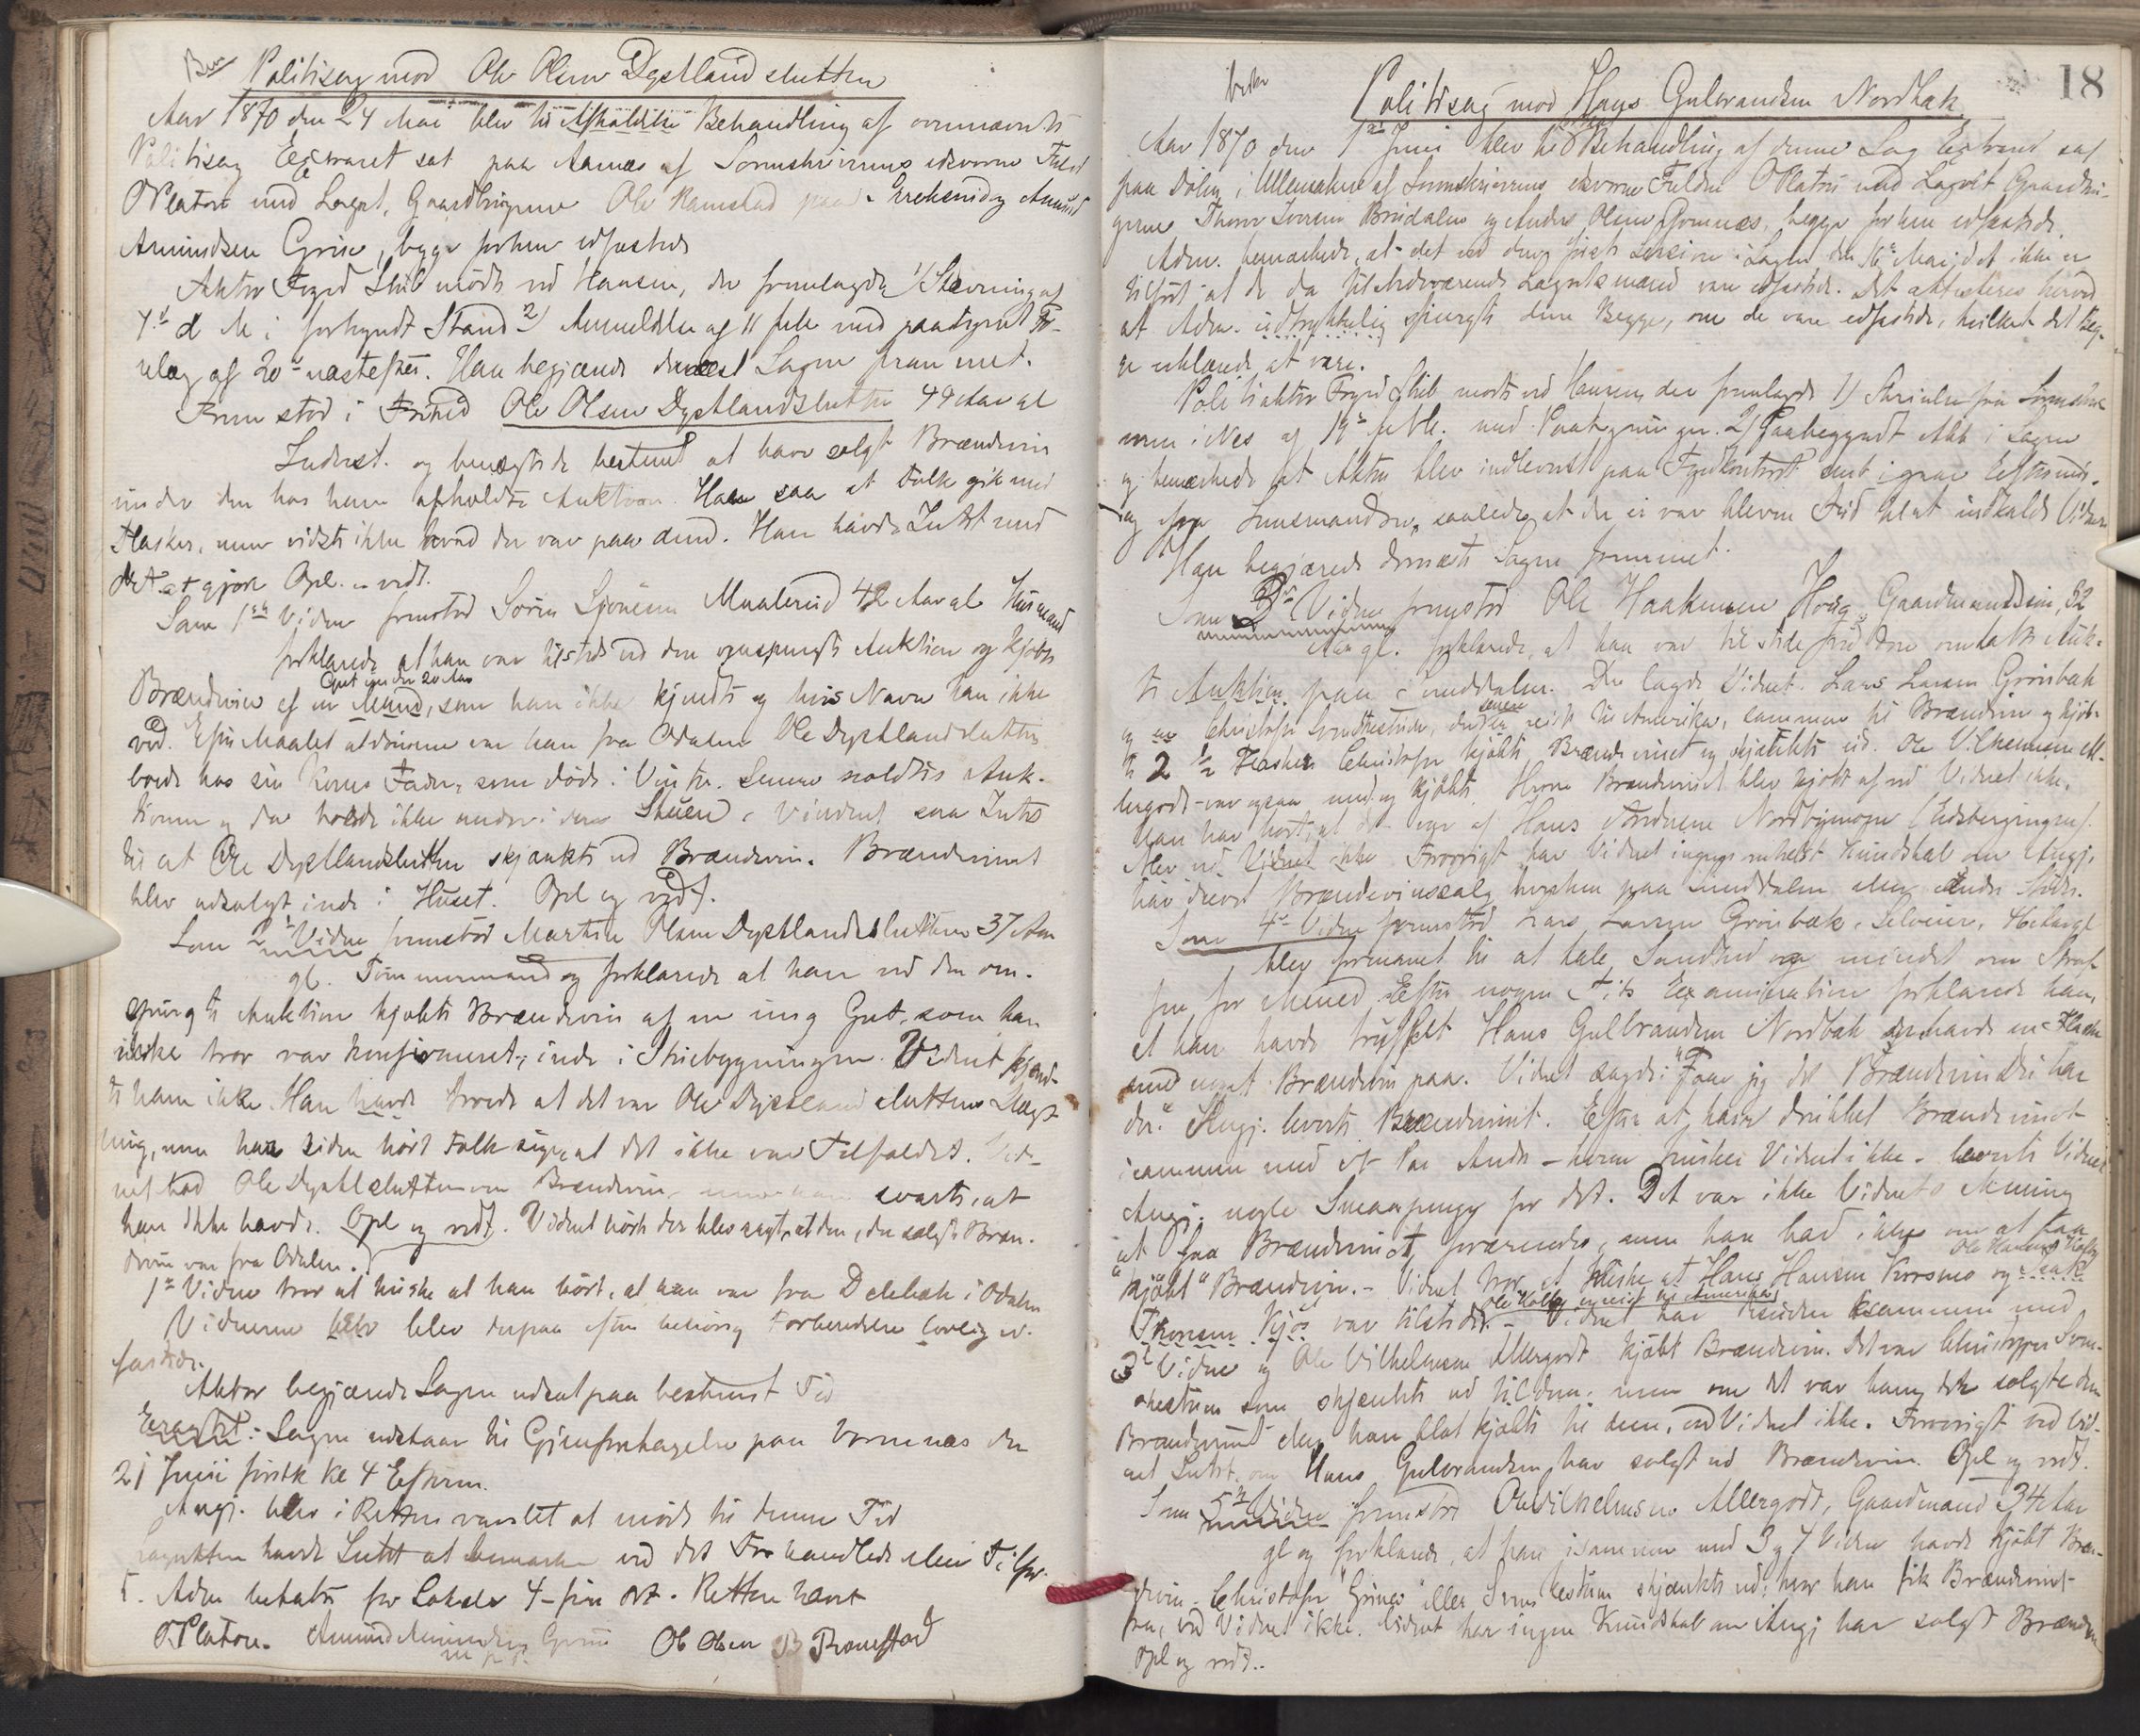 Politisag mod Ole Olsen Dystlandslutten
Aar 1870 den 24 Mai blev til Behandling af ovennævnte
Politisag Extraret sat paa Aamæs af Sorenskriverens edsvorne Fuldm
O Platou med Lagret, Gaardbrugerne Ole Ramstad Amund
Amundsen Grine, begge forhen edfæstede
Aktor Foged Stub mødte ved Hansen, der fremlagde 1) Stævning af
7de d M i forkyndt Stand 2) Anmeldelse af 11 febr med paategnet Fo-
relæg af 20de næstefter. Han begjærede dernæst Sagen fremmet.
Frem stod i Frihed Ole Olsen Dystlandslutten 49 Aar al
Inderst. og benægtede bestemt at have solgt Brændevin
under den hos ham afholdte Auktion. Han saa at Folk gik med
Flasker, men vidste ikke hvad der var paa dem. Han havde Intet med
det at gjøre Opl. og vedt.
Som 1ste Vidne fremstod Søren Maalerud 42 Aar al Husmand
forklarede at han var tilstede ved den omspurgte Auktion og kjøbte
Gut under 20 Aar
Brændevin af en Mand, som han ikke kjendte og hvis Navn han ikke
ved. Efter Maalet at dømme var han fra Odalen Ole Dystlandslutten
boede hos sin Kones Fader, som døde i Vinter. Senere holdtes Auk-
tionen og da boede ikke andre i den Stuen. Vidnet saa Intet
til at Ole Dystlandslutten skjænkte ud Brændevin. Brændevinet
blev udsolgt inde i Huset. Opl og vedt.
Som 2det Vidne fremstod Martin Olsen Dystlandslutten 37 Aar
gl. Tømmermand og forklarede at han ved den om-
spurgte Auktion kjøbte Brændevin af en ung Gut, som han
ikke tror var konfirmeret, inde i Vidnet kjend-
te ham ikke. Han havde troede at det var Ole Dystlandsluttens Slægt-
ning, men har siden hørt Folk sige, at det ikke var Tilfældet. Vid-
net bad Ole Dystlslutten om Brændevin, men han svarte, at
han ikke havde. Opl og vedt. Vidnet hørte der blev sagt, at den, der solgte Bræn-
devin var fra Odalen.
1ste Vidne tror at huske at han hørt, at han var fra i Odalen
Vidnerne blev blev derpaa efter behørig Forberedelse lovlig ed-
fæstede.
Aktor begjærede Sagen udsat paa bestemt Tid
Eragtet: Sagen udstaar til Gjenforetagelse paa Vormnæs den
21 Juni førstk Kl 4 Efterm.
Angj. blev i Retten varslet at møde til denne Tid
Lagretten havde Intet at bemærke ved det Forhandlede eller Tilfør-
te. Adm betalte for Lokale 4 - fire Ort. Retten hævet
O. Platou. Amund Amundsen Grine Ole Olsen B Ramstad
m p P.
18
Politisag mod Hans Gulbrandsen Nordbæk
Aar 1870 den 1ste Juni blev til Behandling af denne Sag Extraret sat
paa Dølen i Ullensaker af Sorenskriverens edsvorne Fuldm O Platou med Lagret Gaardbru-
gerne Thorer Iversen Brudalen og Anders Olsen Gomnæs, begge forhen edfæstede.
Adm. bemærkede, at det ved den første Session i Sagen den 16de Mai, det ikke er
tilført at de da tilstedeværende Lagrettesmænd vare edfæstede. Det attesteres herved
at Adm. udtrykkelig spurgte dem Begge, om de vare edfæstede, hvilket det Beg-
ge erklærede at være.
Politiaktor Foged Stub mødte ved Hansen, der fremlagde 1) Skrivelse fra Sorenskri-
veren i Nes af 19de febr. med Paategninger. 2) Paabegyndt Akt i Sagen
og bemærkede at Akten blev indleveret paa Fogedkontoret sent igaar Eftermid-
dag fra Lensmanden, saaledes at der ei var bleven Tid til at indkalde Vidner
Han begjærede dernæst Sagen fremmet.
Som 3die Vidne fremstod Ole Haakensen Houg, Gaardmandssøn, 32
Aar gl. forklarede, at han var tilstede ved den omtalte Auk-
tion paa Sneddalen. Der lagde Vidnet. Lars Larsen Grønbæk
og Christofer der senere er reist til Amerika, sammen til Brændevin og kjøb-
te 2 1/2 Flasker Christofer kjøbte Brændevinet og skjænkte ud. Ole Vilhelmsen Al-
lergodt var ogsaa med og kjøbte. Hvem Brændevinet blev kjøbt af ved Vidnet ikke,
han har hørt, at det var af Hans Nordbymoen (Eidsbergingen).
Mer ved Vidnet ikke Forøvrigt har Vidnet ingen enhelst Kundskab om Angj.
har drevet Brændevinssalg hverken paa Sneddalen eller andre Steder.
Som 4de Vidne fremstod Lars Larsen Grønbæk, Selveier, 46 Aar gl
blev formanet til at tale Sandhed og mindet om Straf
fen for Mened. Efter nogen Tids Examination forklarede han,
at han havde truffet Hans Gulbrandsen Nordbæk der havde en Flaske
med noget Brændevin paa. Vidnet sagde: "Faar jeg det Brændevin Du har
der." Angj. leverte Brændevinet. Efter at have drukket Brændevinet
isammen med et Par Andre – hvem husker Vidnet ikke – leverte Vidnet
Angj. nogle Smaapenge for det. Det var ikke Vidnets Mening
at faa Brændevinet forærende, men han bad ikke om at faa
"kjøbt" Brændevin. – Vidnet tror at huske at Hans Hansen Korsmo og
Thorsen Kjøs var tilstede. – Vidnet har sammen med
3die Vidne og Ole Vilhelmsen Allergodt kjøbt Brændevin. Det var Christopher
som skjænkte ud til dem. men om det var ham, der solgte dem
Brændevinet eller han blot kjøbte til dem, ved Vidnet ikke. Forøvrigt ved Vid-
net Intet om Hans Gulbrandsen har solgt ud Brændevin. Opl og vedt.
Som 5te Vidne fremstod Ole Vilhelmsen Allergodt, Gaardmand 34 Aar
gl og forklarede, at han isammen med 3 og 4 Vidne havde kjøbt Bræn-
devin. Christofer "Grines" eller skjænkte ud; hvor han fik Brændevinet
fra, ved Vidnet ikke. Vidnet har ingen Kundskab om Angj har solgt Brændevin
Opl og vedt..